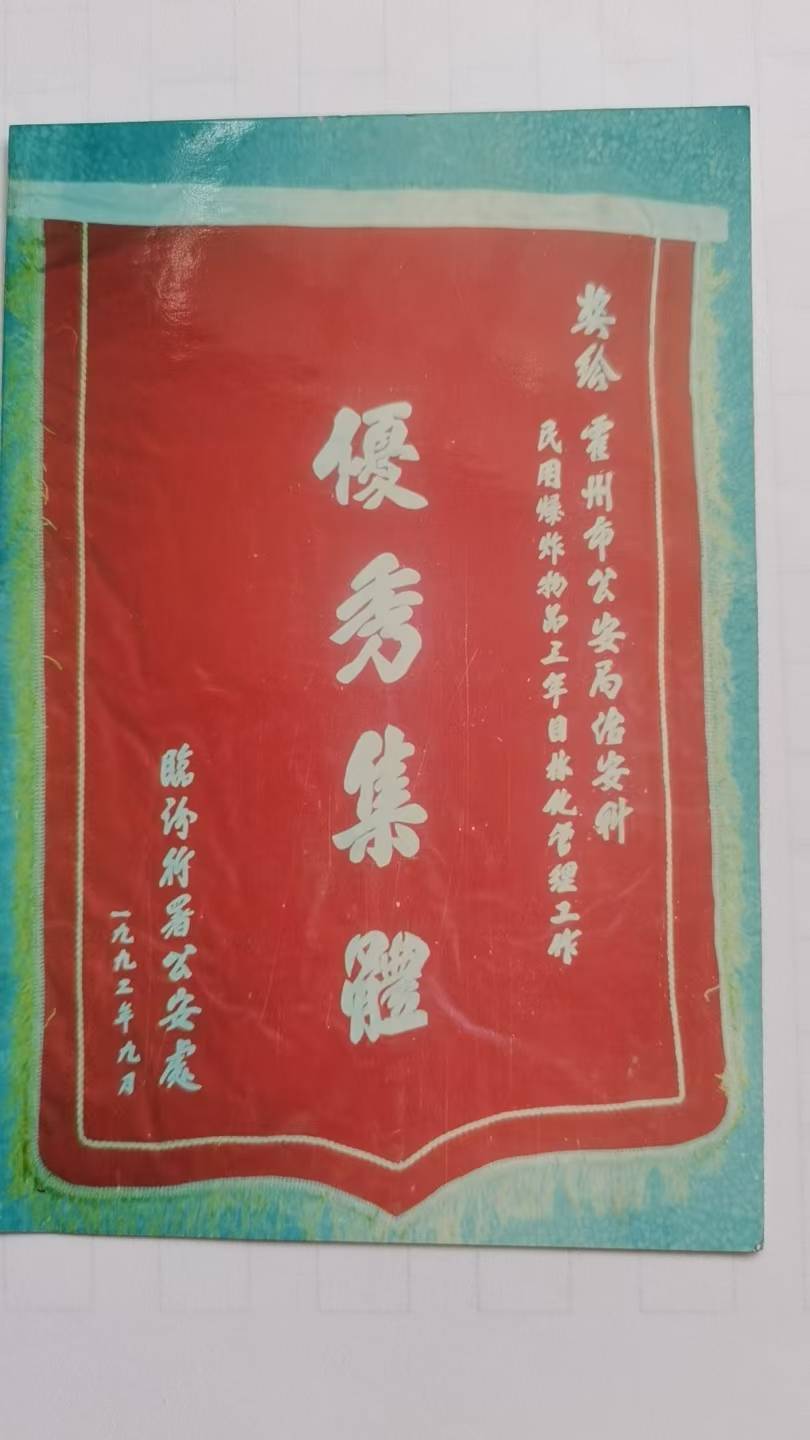 奖给 霍州市公安局治安科
民用爆炸物品三年目标化管理工作
優秀集體
臨汾行署公安處
一九九二年九月